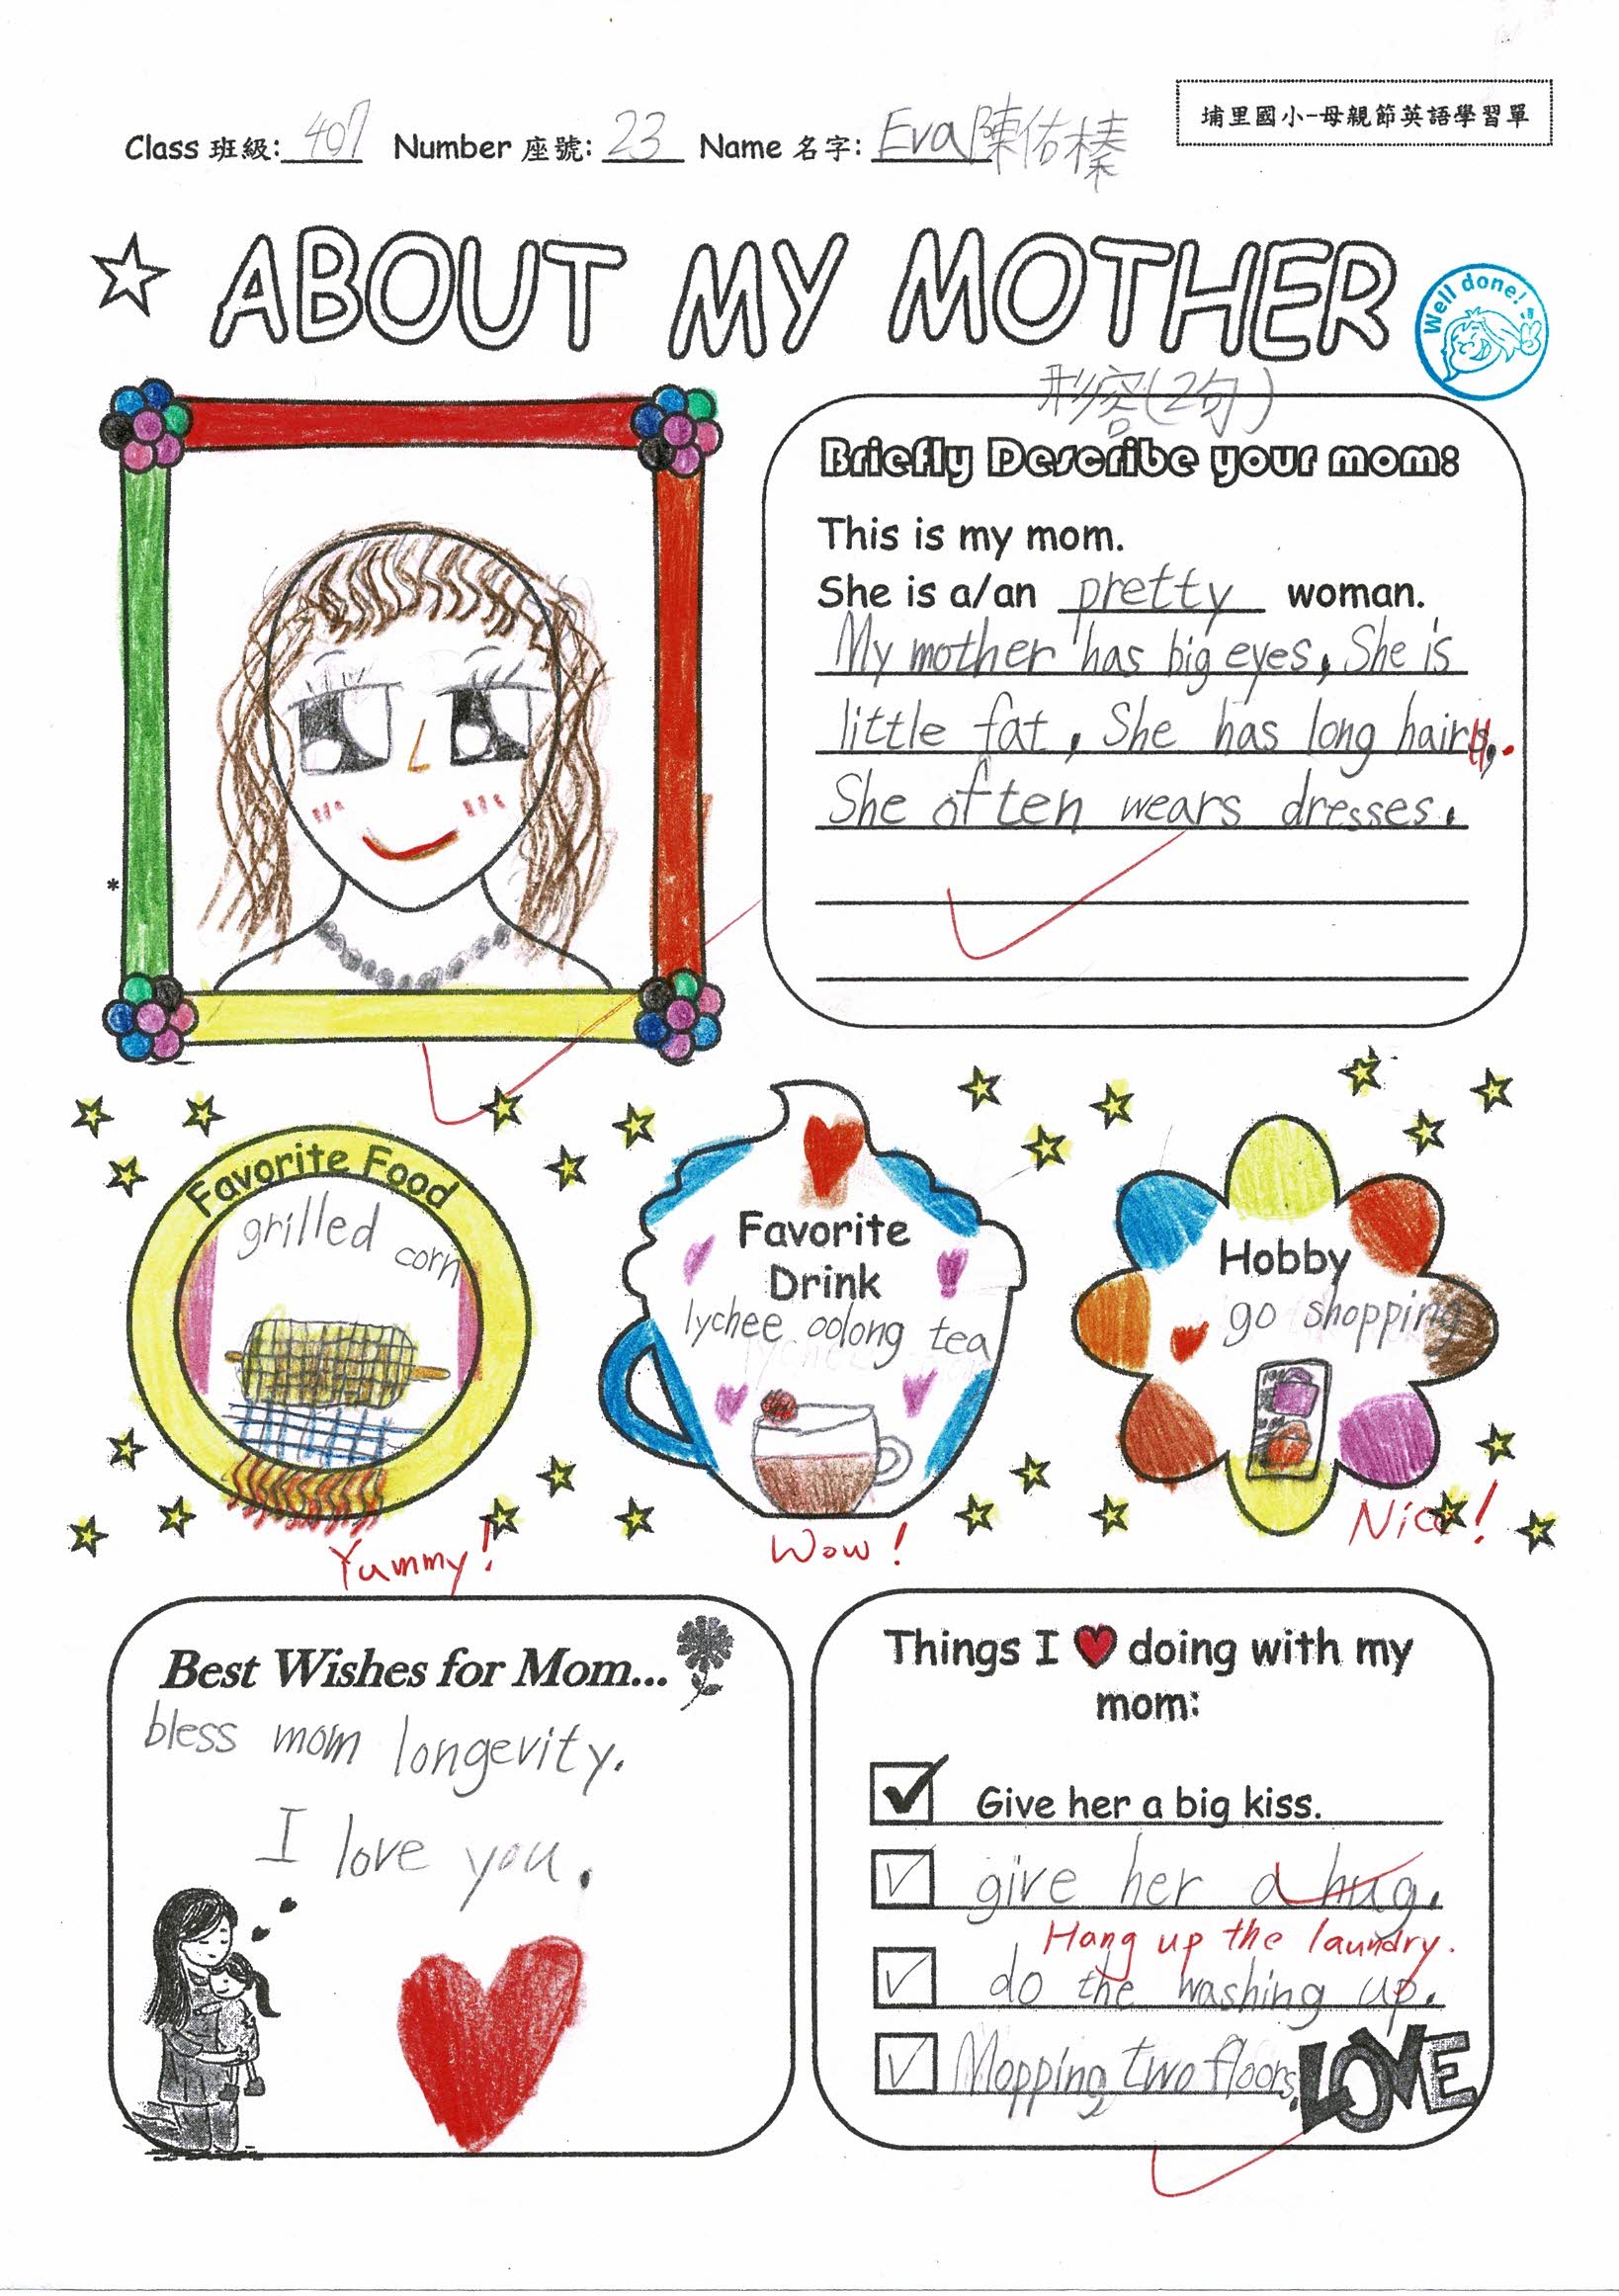 埔里國小-母親節英語學習單
Class 班級: 407 Number 座號: 23 Name 名字: Eva 陳佑榛
ABOUT MY MOTHER
Well done!
形容(2句)
Briefly Describe your mom:
This is my mom.
She is a/an pretty woman.
My mother has big eyes, She is
little fat, She has long hair.
She often wears dresses.
Favorite Food
grilled corn
Favorite
Drink
lychee oolong tea
Hobby
go shopping
Yummy!
Wow!
Nice!
Best Wishes for Mom...
bless mom longevity.
I love you.
Things I ♥ doing with my
mom:
Give her a big kiss.
give her a hug.
Hang up the laundry.
do the washing up.
Mopping two floors.
LOVE